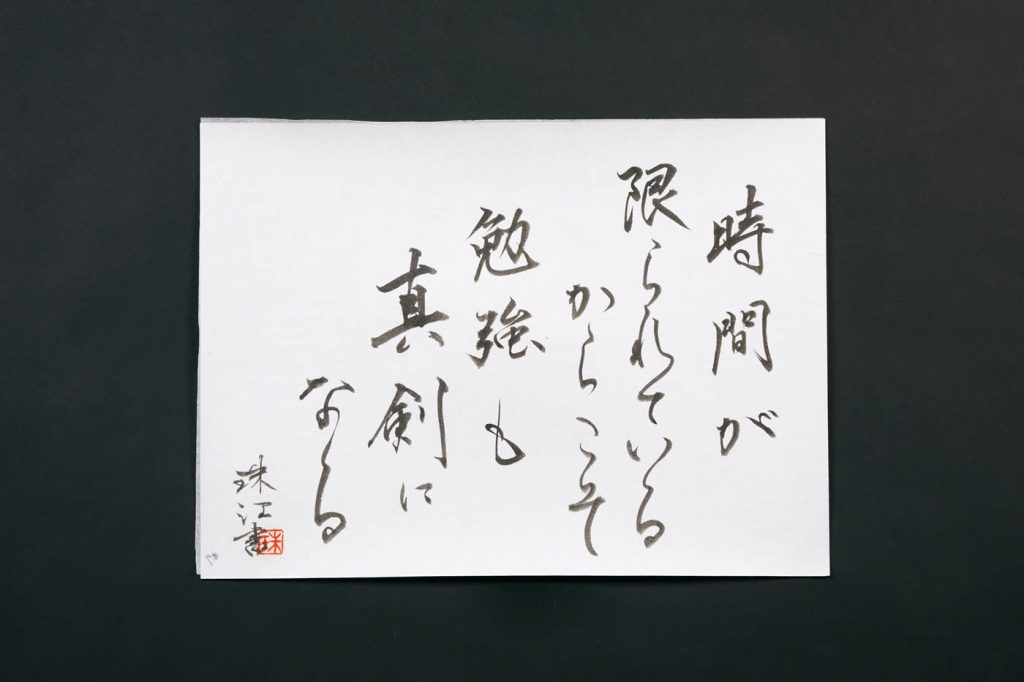 時間が
限られている
からこそ
勉強も
真剣に
なる
珠江書
珠